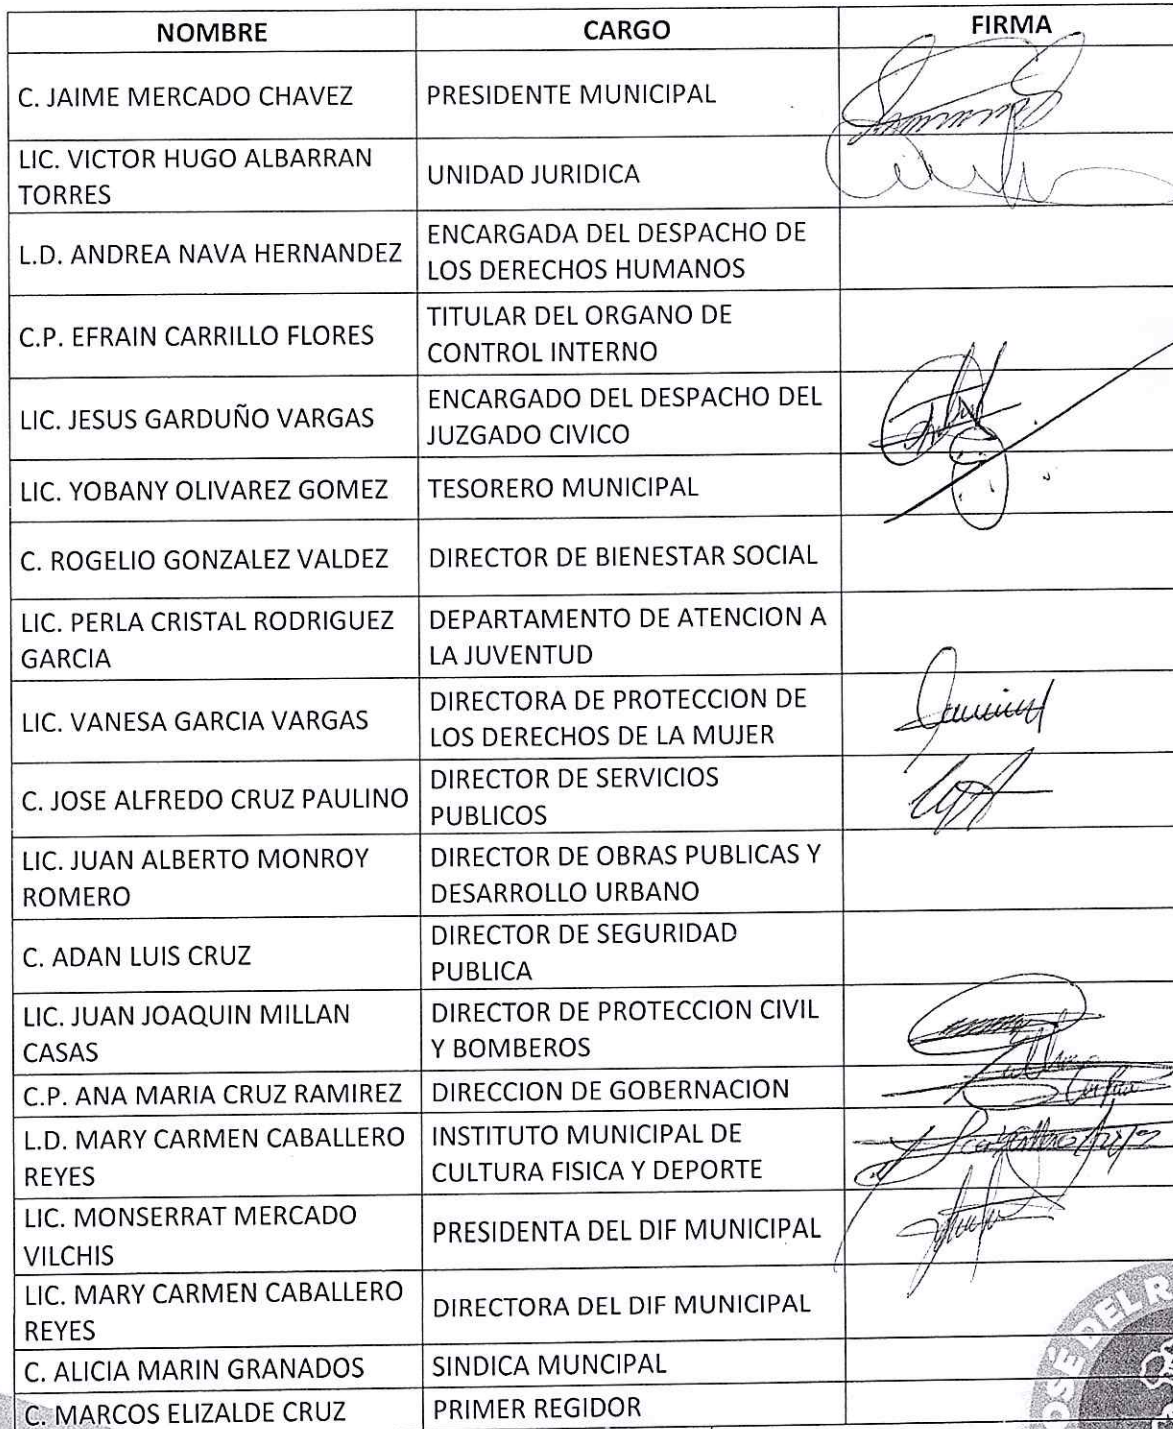 NOMBRE CARGO FIRMA
C. JAIME MERCADO CHAVEZ PRESIDENTE MUNICIPAL
LIC. VICTOR HUGO ALBARRAN
TORRES
UNIDAD JURIDICA
L.D. ANDREA NAVA HERNANDEZ
ENCARGADA DEL DESPACHO DE
LOS DERECHOS HUMANOS
C.P. EFRAIN CARRILLO FLORES
TITULAR DEL ORGANO DE
CONTROL INTERNO
LIC. JESUS GARDUÑO VARGAS
ENCARGADO DEL DESPACHO DEL
JUZGADO CIVICO
LIC. YOBANY OLIVAREZ GOMEZ TESORERO MUNICIPAL
C. ROGELIO GONZALEZ VALDEZ DIRECTOR DE BIENESTAR SOCIAL
LIC. PERLA CRISTAL RODRIGUEZ
GARCIA
DEPARTAMENTO DE ATENCION A
LA JUVENTUD
LIC. VANESA GARCIA VARGAS
DIRECTORA DE PROTECCION DE
LOS DERECHOS DE LA MUJER
C. JOSE ALFREDO CRUZ PAULINO
DIRECTOR DE SERVICIOS
PUBLICOS
LIC. JUAN ALBERTO MONROY
ROMERO
DIRECTOR DE OBRAS PUBLICAS Y
DESARROLLO URBANO
C. ADAN LUIS CRUZ
DIRECTOR DE SEGURIDAD
PUBLICA
LIC. JUAN JOAQUIN MILLAN
CASAS
DIRECTOR DE PROTECCION CIVIL
Y BOMBEROS
C.P. ANA MARIA CRUZ RAMIREZ DIRECCION DE GOBERNACION
L.D. MARY CARMEN CABALLERO
REYES
INSTITUTO MUNICIPAL DE
CULTURA FISICA Y DEPORTE
LIC. MONSERRAT MERCADO
VILCHIS
PRESIDENTA DEL DIF MUNICIPAL
LIC. MARY CARMEN CABALLERO
REYES
DIRECTORA DEL DIF MUNICIPAL
C. ALICIA MARIN GRANADOS SINDICA MUNCIPAL
C. MARCOS ELIZALDE CRUZ PRIMER REGIDOR
OSÉ DEL R